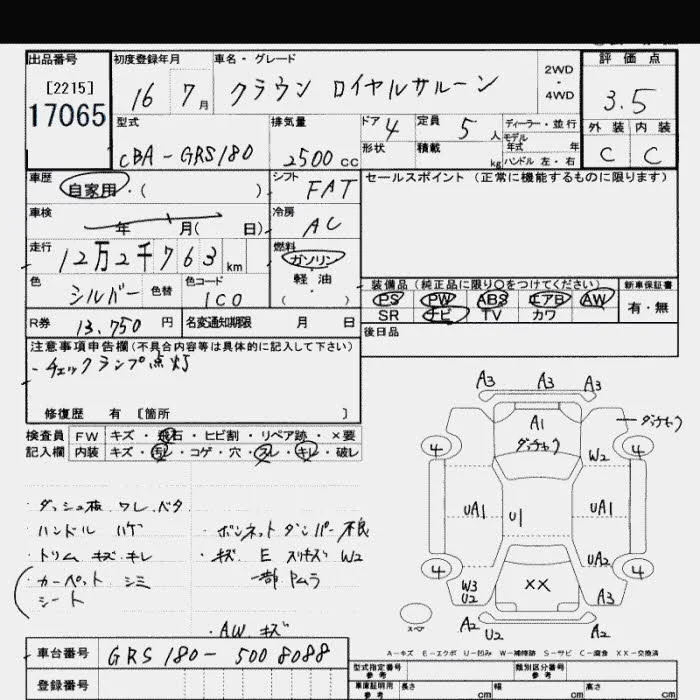 出品番号 初度登録年月 車名・グレード 2WD・4WD 評価点
[2215]
17065 16 7月 クラウン ロイヤルサルーン 3.5
型式 排気量 ドア 4 定員 5人 ディーラー・並行 外装 内装
CBA-GRS180 2500cc 形状 積載 kg モデル年式 年 ハンドル 左・右 C C
車歴 自家用・( ) シフト FAT セールスポイント (正常に機能するものに限ります)
車検 年 月( 日) 冷房 AC
走行 12万2千763km 燃料 ガソリン・軽油・( )
色 シルバー 色替 色コード 1C0
装備品 (純正品に限り○をつけてください) 新車保証書
PS PW ABS エアB AW 有・無
SR ナビ TV カワ
R券 13,750円 名変通知期限 月 日 後日品
注意事項申告欄 (不具合内容等は具体的に記入して下さい)
-チェックランプ点灯
修復歴 有 [箇所 ]
検査員 FW キズ・飛石・ヒビ割・リペア跡・×要
記入欄 内装 キズ・汚レ・コゲ・穴・スレ・キレ・破レ
・ダッシュ板 ワレ ベタ
・ハンドル ハゲ ・ボンネットダンパー不良
・トリム キズ キレ ・キズ E スリキズ W2
・カーペット シミ 一部 ムラ
シート
・AW キズ
A3 A3 A3
A1 ダッチャク
ダッチャク
W2
4 4
UA1 U1 UA1
UA2
4 4
W3 U2 XX A3
スペア
A2 U2 A2
A-キズ E-エクボ U-凹み W-補修跡 S-サビ C-腐食 XX-交換済
車台番号 GRS180-5008088
型式指定番号 参考 類別区分番号 参考
登録番号 車庫証明用 参考 長さ cm 幅 cm 高さ cm